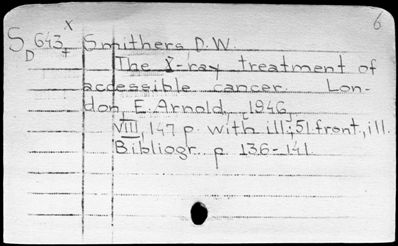 6
S 643 x Smithers, D.W.
D ‡
The X-ray treatment of
accessible cancer. Lon-
don, E. Arnold, 1946,
VIII, 147 p. with ill; 51 front, ill.
Bibliogr. p. 136-141.